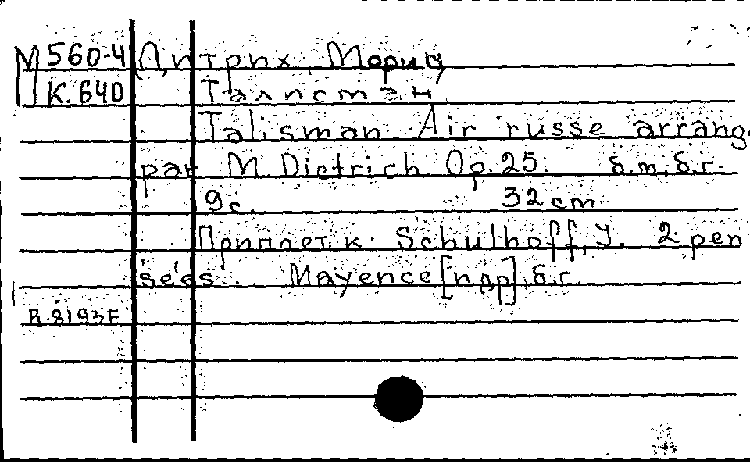 М 560-4 Дитрих, Мориц
К. 640 Талисман
Talisman Air russe arrang
par M. Dietrich Op. 25. б.m, б.г.
9с. 32 cm
Приплет. к: Schulhoff, J. 2 pen
sées. Mayence [идр], б.г.